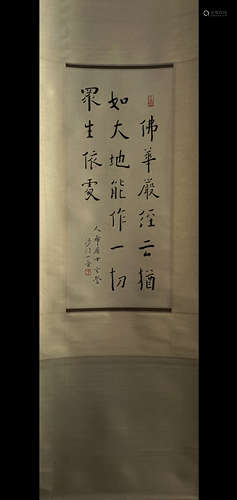 佛華嚴經云猶
如大地能作一切
眾生依處